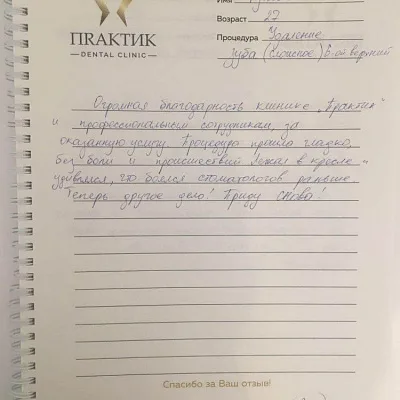 Имя
Возраст 27
Процедура Удаление
зуба (сложное) 6-ой верхний
ПRАКТИК
DENTAL CLINIC
Огромная благодарность клинике „Практик"
и профессиональным сотрудникам, за
оказанную услугу. Процедура прошла гладко,
без боли и происшествий. Лежал в кресле и
удивлялся, что боялся стоматологов раньше.
Теперь другое дело! Приду снова!
Спасибо за Ваш отзыв!